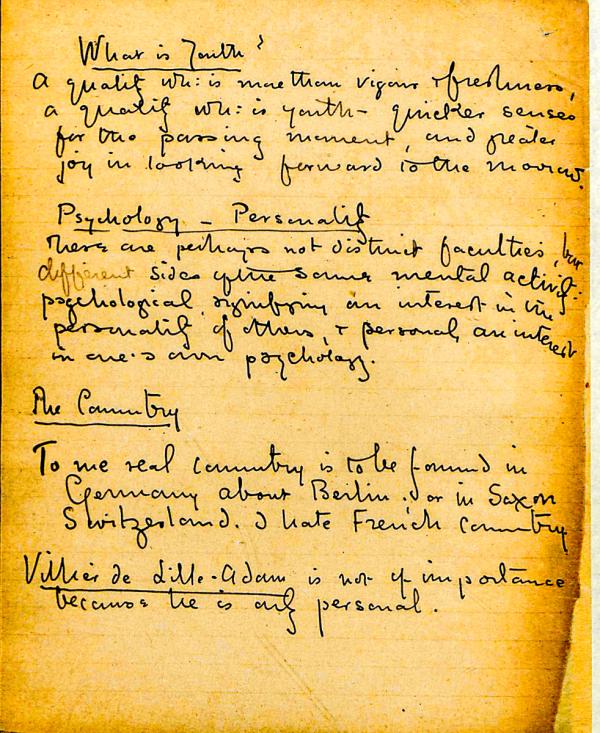 What is Youth?
A quality wh: is more than vigour & freshness,
a quality wh: is youth - quicker senses
for the passing moment, and greater
joy in looking forward to the morrow.
Psychology - Personality
These are perhaps not distinct faculties, but
different sides of the same mental activity:
psychological, signifying an interest in the
personality of others, & personal, an interest
in one's own psychology.
The Country
To me real country is to be found in
Germany about Berlin. or in Saxon
Switzerland. I hate French country
Villiers de Lille-Adam is not of importance
because he is only personal.